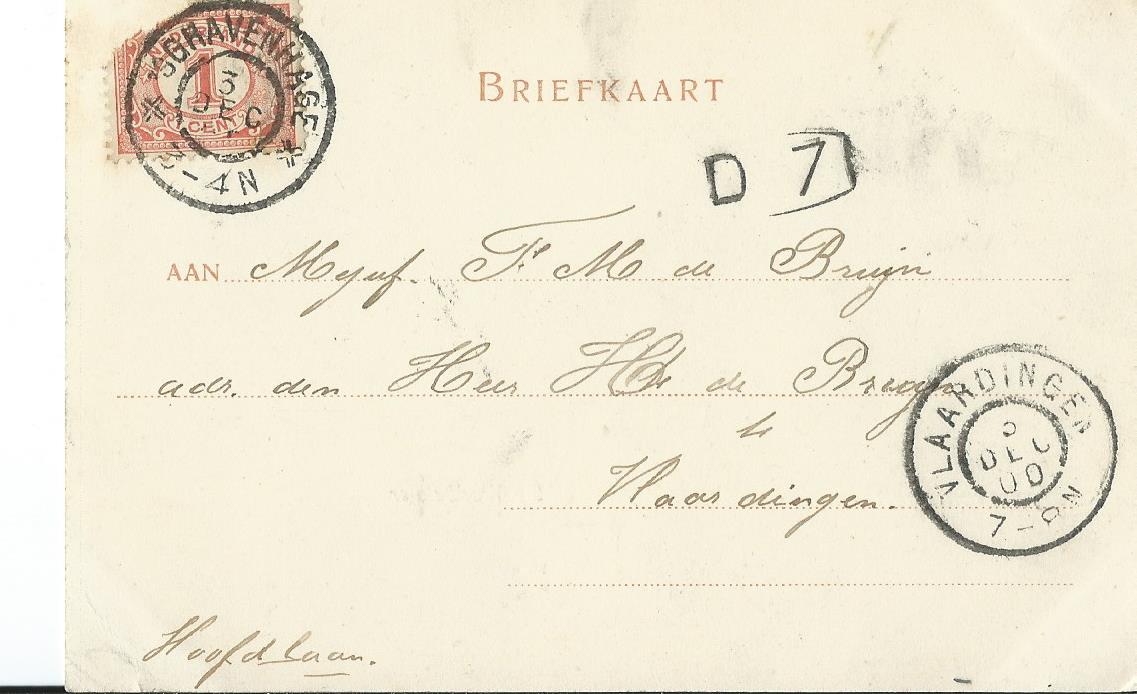 'SGRAVENHAGE
NEDERLAND
1
CENT
3
DEC
-4N
BRIEFKAART
D 7
AAN Mejuf. F. M de Bruijn
adr. den Heer H de Bruijn
te
Vlaardingen.
VLAARDINGEN
3
DEC
00
7-8N
Hoofdlaan.